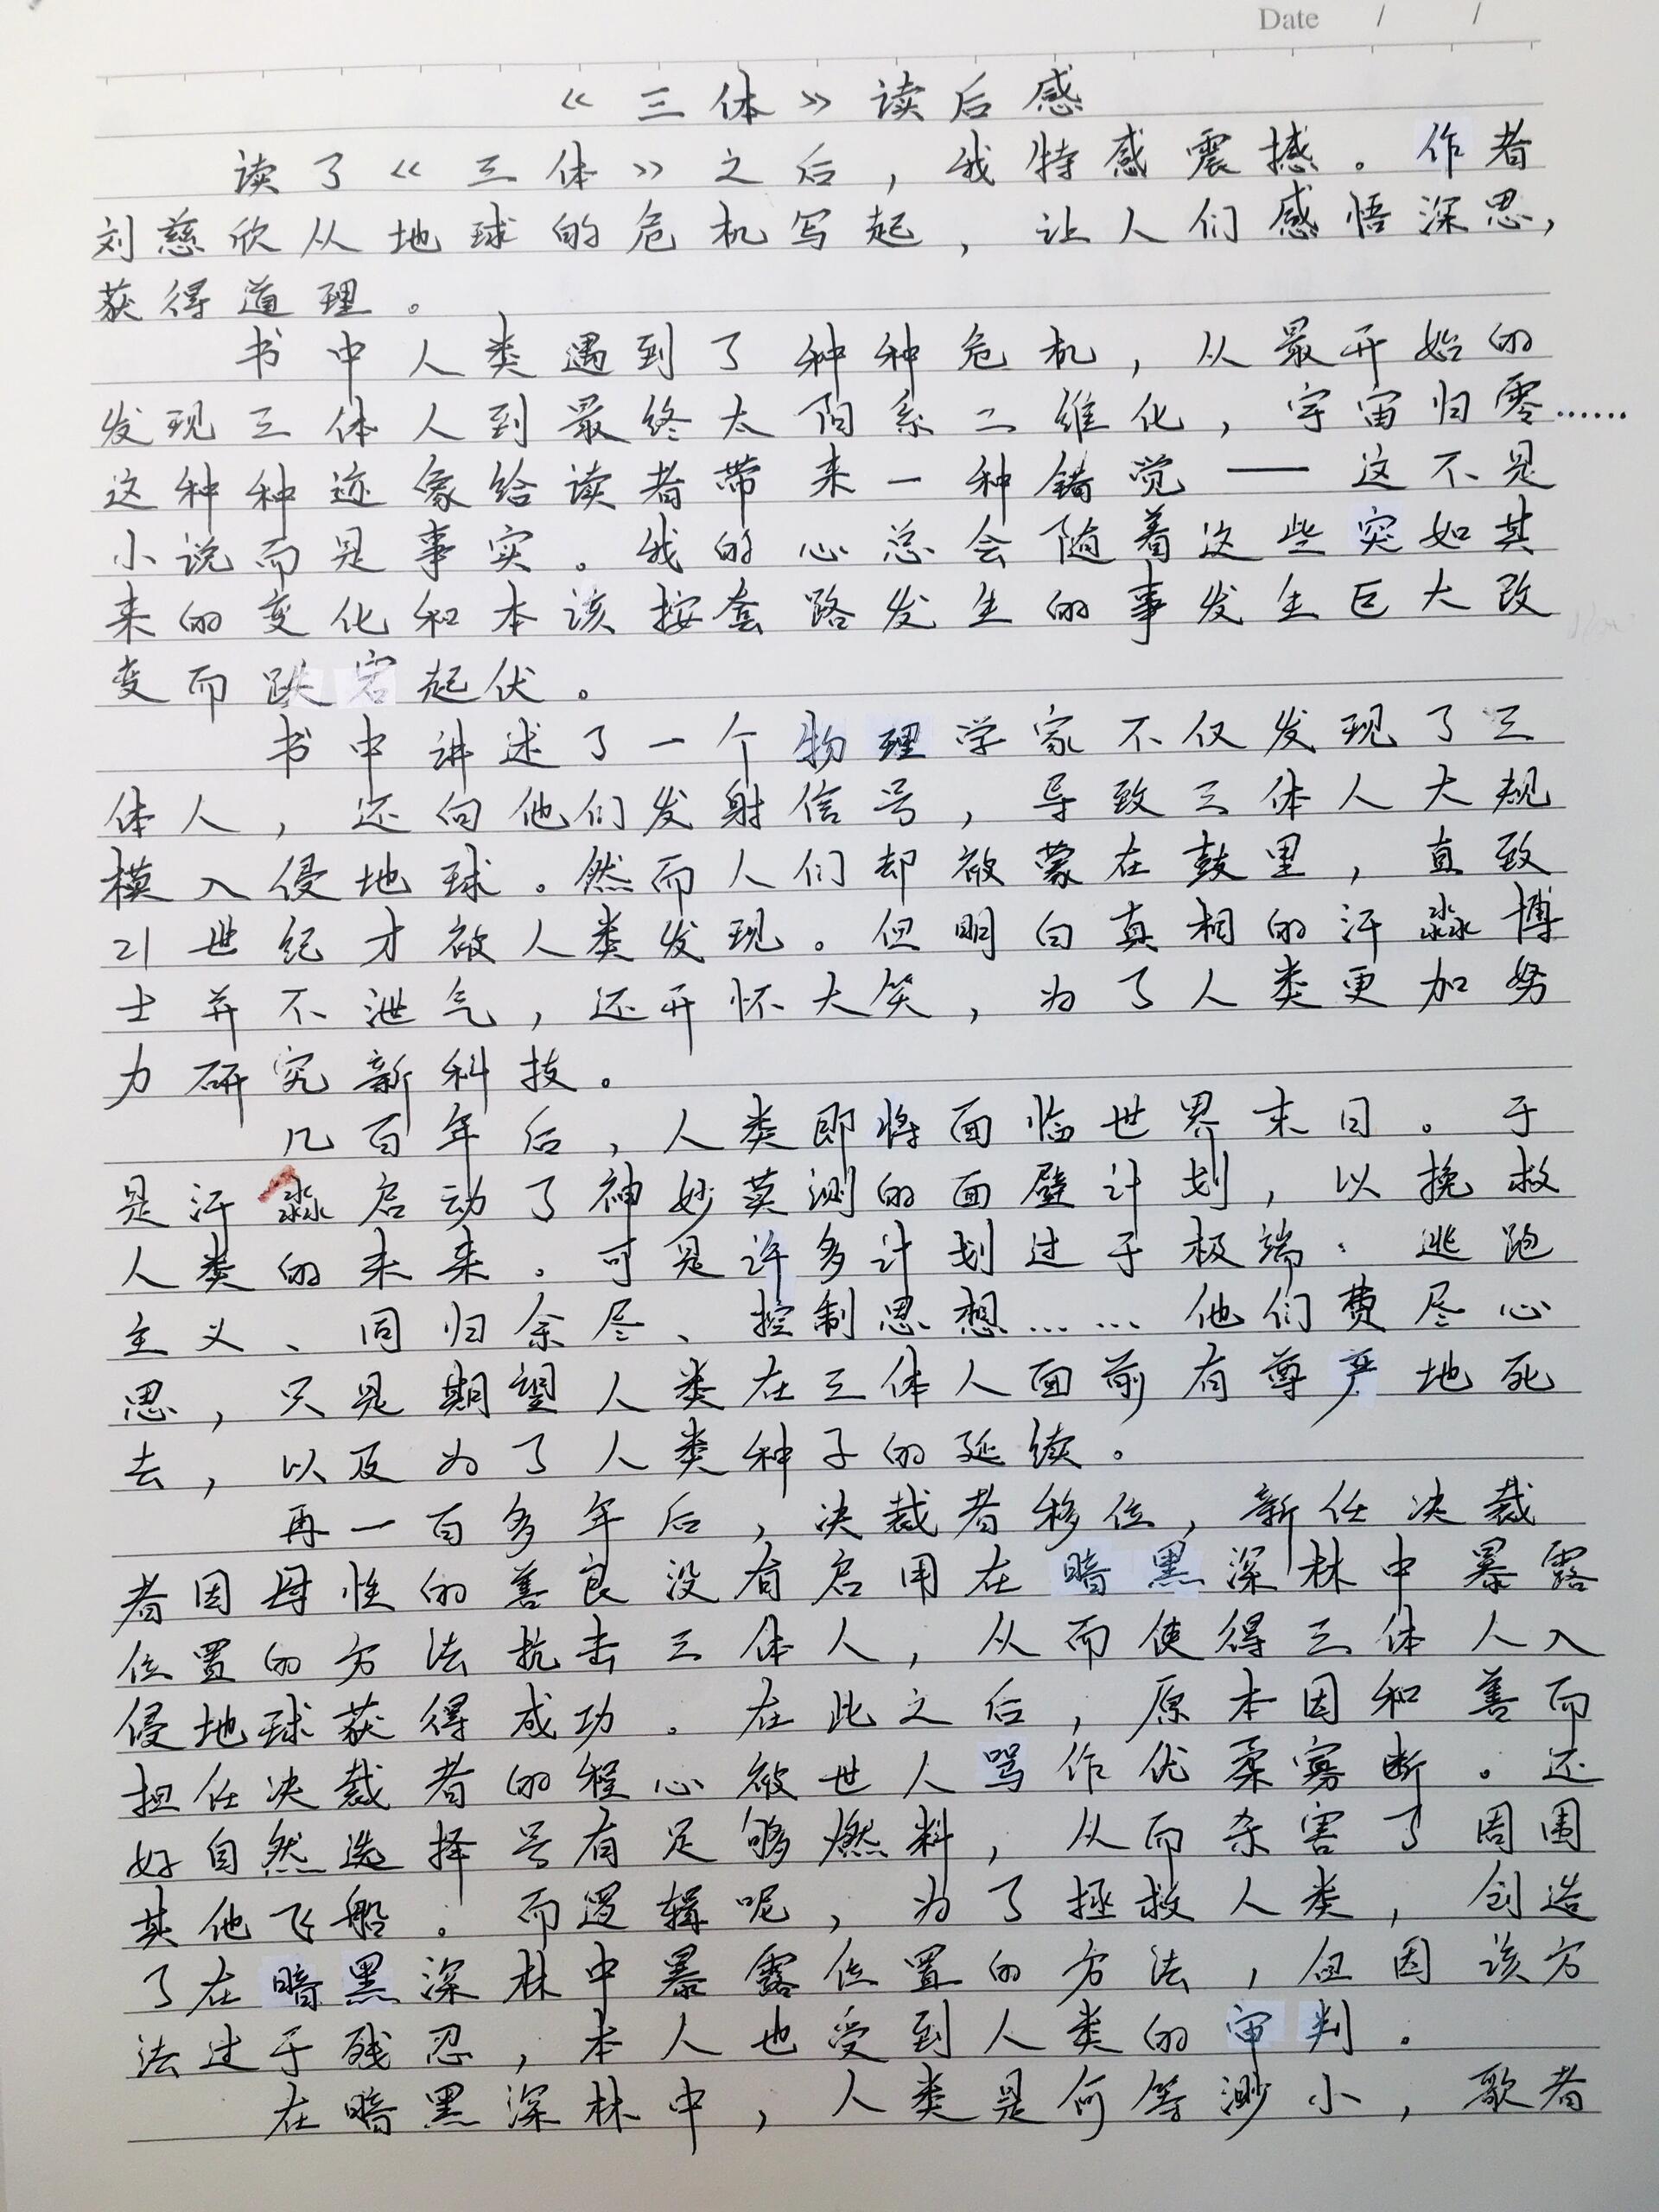 Date / /
《三体》读后感
读了《三体》之后，我特感震撼。作者
刘慈欣从地球的危机写起，让人们感悟深思，
获得道理。
书中人类遇到了种种危机，从最开始的
发现三体人到最终太阳系二维化，宇宙归零……
这种种迹象给读者带来一种错觉——这不是
小说而是事实。我的心总会随着这些突如其
来的变化和本该按套路发生的事发生巨大改
变而跌宕起伏。
书中讲述了一个物理学家不仅发现了三
体人，还向他们发射信号，导致三体人大规
模入侵地球。然而人们却被蒙在鼓里，直致
21世纪才被人类发现。但明白真相的汗淼博
士并不泄气，还开怀大笑，为了人类更加努
力研究新科技。
几百年后，人类即将面临世界末日。于
是汗淼启动了神妙莫测的面壁计划，以挽救
人类的未来。可是许多计划过于极端：逃跑
主义、同归余尽、控制思想……他们费尽心
思，只是期望人类在三体人面前有尊严地死
去，以及为了人类种子的延续。
再一百多年后，决裁者移位，新任决裁
者因母性的善良没有启用在暗黑深林中暴露
位置的方法抗击三体人，从而使得三体人入
侵地球获得成功。在此之后，原本因和善而
担任决裁者的程心被世人骂作优柔寡断。还
好自然选择号有足够燃料，从而杀害了周围
其他飞船。而逻辑呢，为了拯救人类，创造
了在暗黑深林中暴露位置的方法，但因该方
法过于残忍，本人也受到人类的审判。
在暗黑深林中，人类是何等渺小，歌者